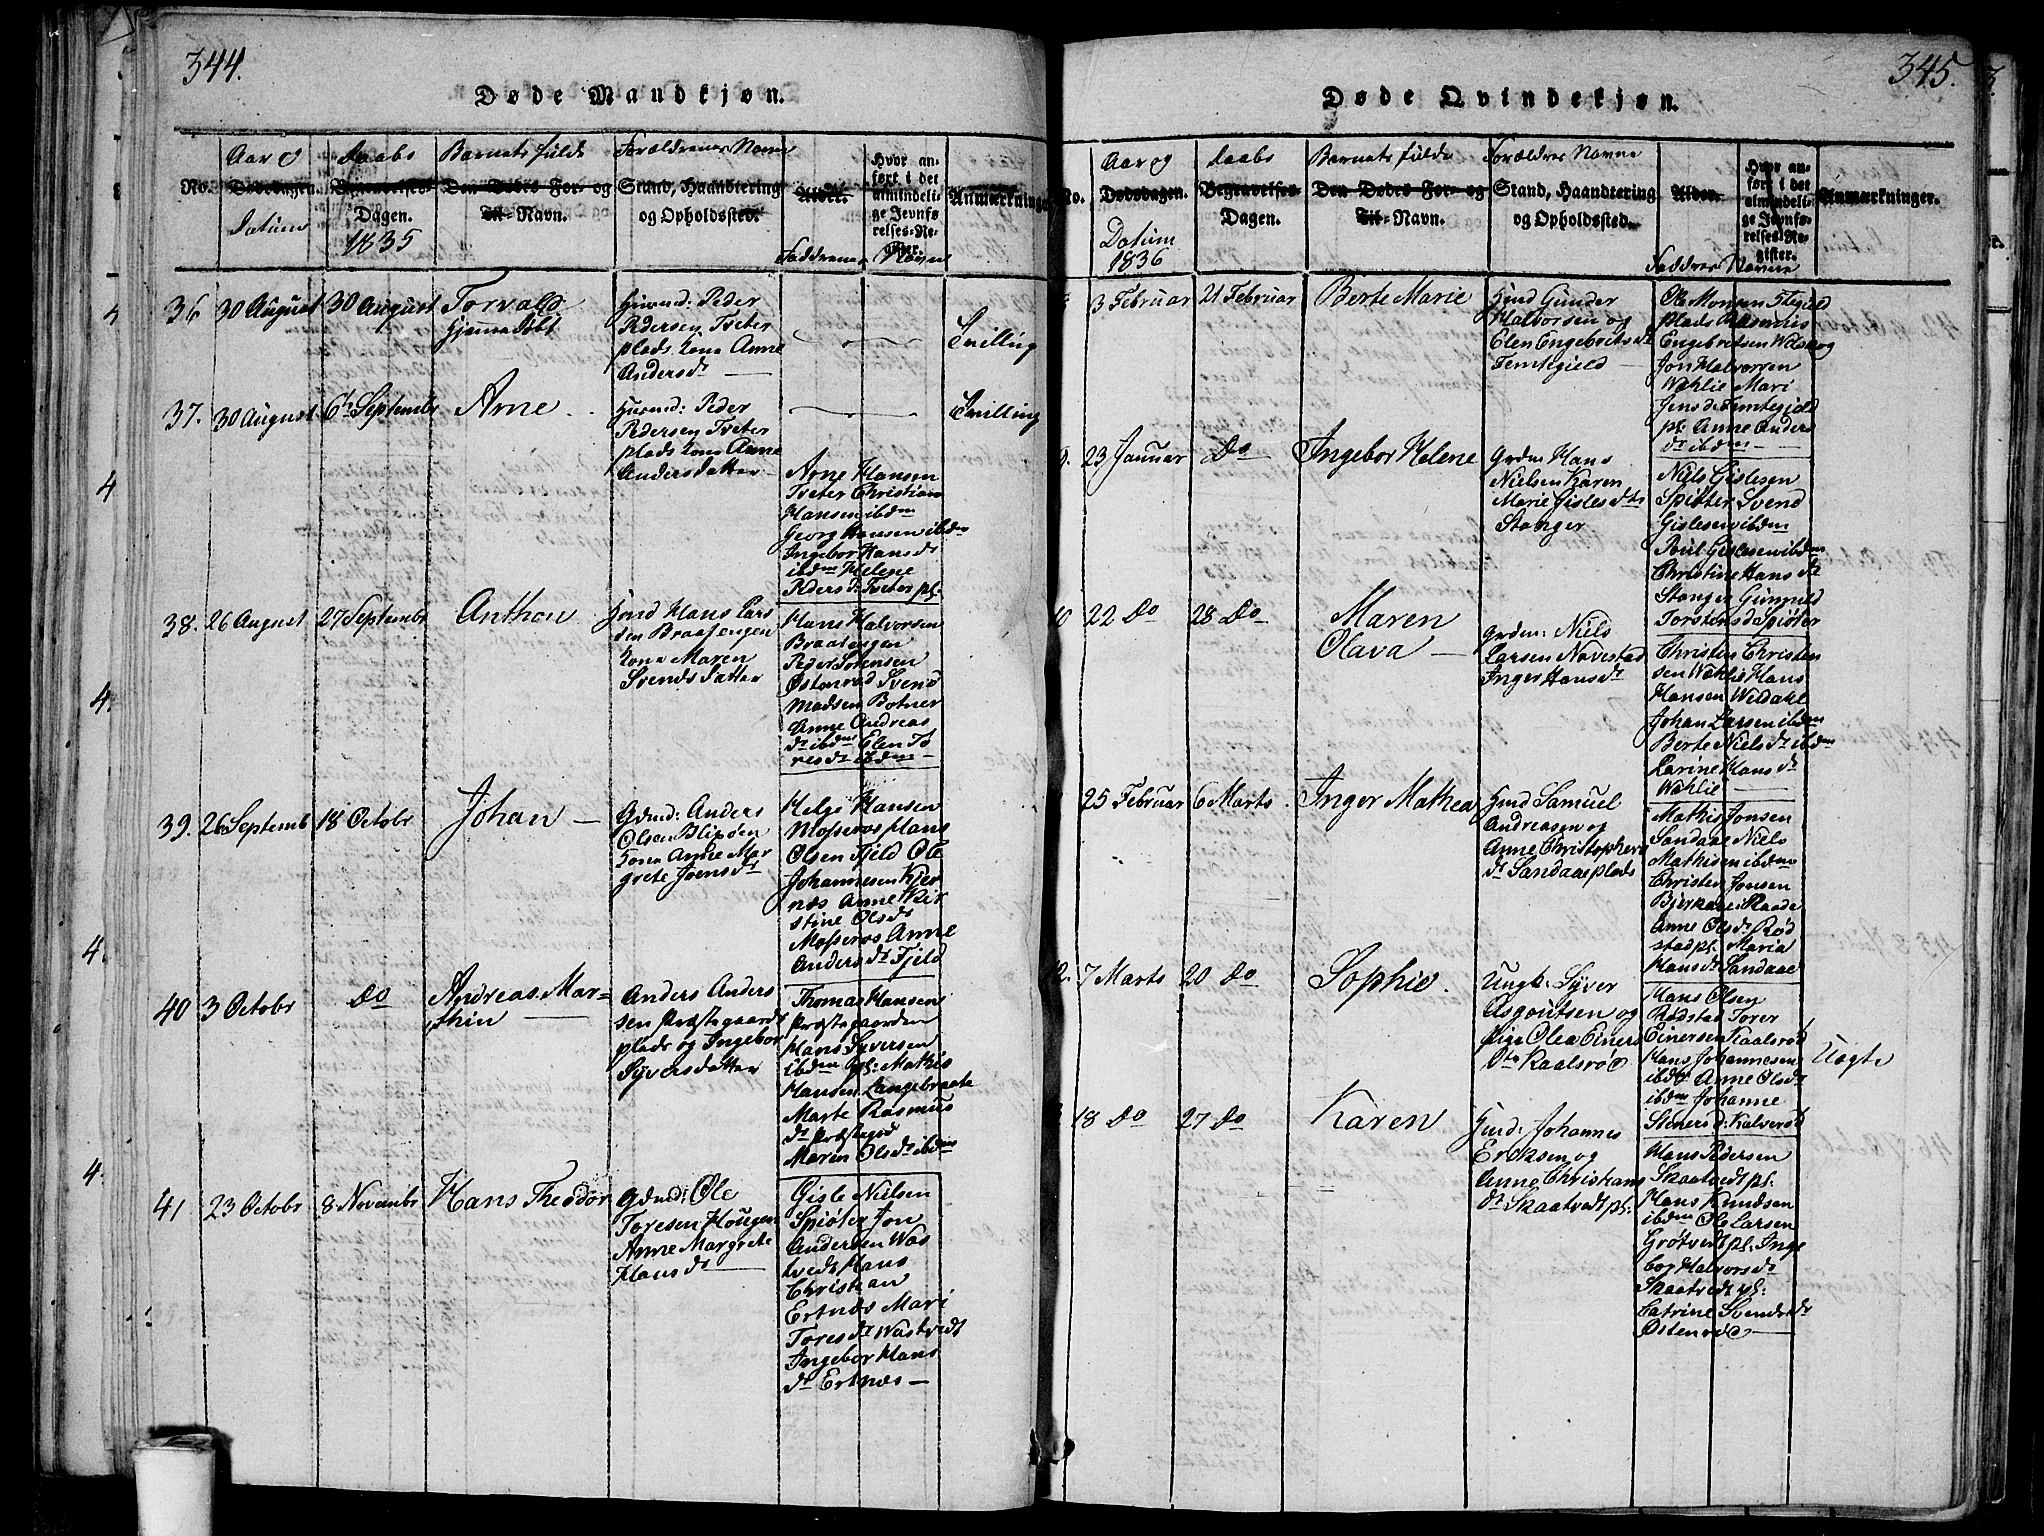 344.
Døde Mandkjøn.
Aar og
Daabs
Barnets fulde
Forældrenes Navne
No.
Dødsdagen.
Begravelses-
Dagen.
Datum
1835
Den Dødes For- og
Til-Navn.
Stand, Haandtering
og Opholdssted.
Alder.
Hvor an-
ført i det
almindeli-
ge Jevnfø-
relses-Re-
gister.
Faddrenes Navne
Anmærkninger
36
30 August
30 August
Torvald
hjemmedøbt
Huusmd: Peder
Pedersen Tveter
plads kone Anne
Andersdr
Tvilling
37.
30 August
6te Septembr
Arne
Huusmd: Peder
Pedersen Tveter
plads kone Anne
Andersdatter
Tvilling
Arne Hansen
Tveter Christian
Hansen ibdm
Georg Hansen ibdm
Ingebor Hansdr
ibdm Helene
Pedersdr Tveter pl.
38.
26 August
27 Septembr
Anthon
Hmd Hans Lars
sen Braatengen
kone Maren
Svendsdatter
Hans Halvorsen
Braatengen
Peder Sørensen
Østenrød Svend
Madsen Botner
Anne Andreas
dr ibdm Elen To
resdr ibdm
39.
26 Septemb
18 Octobr
Johan
Gdmd: Anders
Olsen Slipøen
kone Anne Mar
grete Joensdr
Helge Hansen
Mosserøs Hans
Olsen Fjeld Ole
Johannesen Kjer
næs Anne Kir
stine Olsdr
Mosserøs Anne
Andersdr Fjeld
40
3 Octobr
do
Andreas Mar=
thin
Anders Anders
sen Præstegaards
plads og Ingebor
Syversdatter
Thomas Hansen
Præstegaarden
Hans Syversen
ibdm Gpl: Mathis
Hansen Langebraate
Marte Rasmus
dr Præstegrd
Maren Olsdr ibdm
41
23 Octobr
8 Novembr
Hans Theodor
Gdmd: Ole
Toresen Hougen
Anne Margrete
Hansdr
Gisle Nielsen
Spiøter Jon
Andersen Was
tvedt Hans
Christian
Ertnæs Mari
Toresdr Wastvedt
Ingebor Hans
dr Ertnæs
345.
Døde Qvindekjøn.
Aar og
Daabs
Barnets fulde
Forældres Navne
No.
Dødsdagen.
Begravelses-
Dagen.
Datum
1836
Den Dødes For- og
Til-Navn.
Stand, Haandtering
og Opholdssted.
Alder.
Hvor an-
ført i det
almindeli-
ge Jevnfø-
relses-Re-
gister.
Faddres Navne
Anmærkninger.
3 Februar
21 Februar
Berte Marie
Hmd Gunder
Halvorsen og
Elen Engebritsdr
Femtegield
Ole Monsen Stegild
plads Rasmus
Engebretsen Wilskog
Jon Halvorsen
Wahlie Mari
Jensdr Femtegield
pl: Anne Anders
dr ibdm
9.
23 Januar
do
Ingebor Helene
Grdm: Hans
Nielsen Karen
Marie Gislesdtr
Stanger
Niels Gislesen
Spitter Svend
Gislesen ibdm
Poul Gislesen ibdm
Christine Hansdr
Stanger Gunnild
Torstensd Spiøter
10
22 do
28 do
Maren
Olava
Grdm: Niels
Larsen Navestad
Inger Hansdr
Christen Christen
sen Wahlie Hans
Hansen Weidahl
Johan Larsen ibdm
Berte Nielsdr ibdm
Karine Hansdr
Wahlie
25 Februar
6 Marts
Inger Mathea
Hmd Samuel
Andreasen og
Anne Christophers
dr Sandaaeplads
Mathis Jonsen
Sandaae Niels
Mathisen ibdm
Christen Jonsen
Bjerkaae Skaade
Anne Olsdr Rød
stad pl: Maria
Hansdr Sandaae
12.
7 Marts
20 do
Sophie.
Ungk: Syver
Asgoutsen og
Pige Olea Einers
dtr Kaalsrød
Hans Olsen
Rødstad Torer
Einersen Kaalsrød
Hans Johannesen
ibdm Anne Olsdr
ibdm Johanne
Steners d: Kalverød
Uægte
18 do
27 do
Karen
Hmd: Johannes
Eriksen og
Anne Christians
dr Skaatvedt pl:
Hans Pedersen
Skaatvedt pl:
Hans Knudsen
ibdm Ole Larsen
Grøtvedt pl: Inge
bor Halvorsdr
Skaatvedt pl:
Catrine Svendsdr
Østenrød